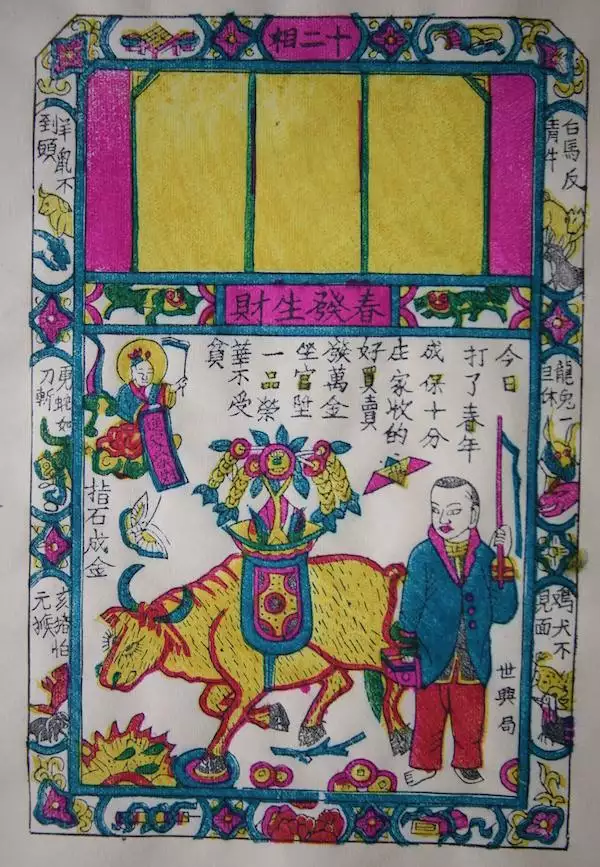 十二相
白馬反
青牛
羊鼠不
到頭
春發生財
龍兔一
旦休
蛇如
刀斬
今日
打了春年
成保十分
庄家收的
好買賣
發萬金
坐官陞
一品榮
華不受
貧
指石成金
鷄犬不
見面
亥猪怕
元猴
世興局